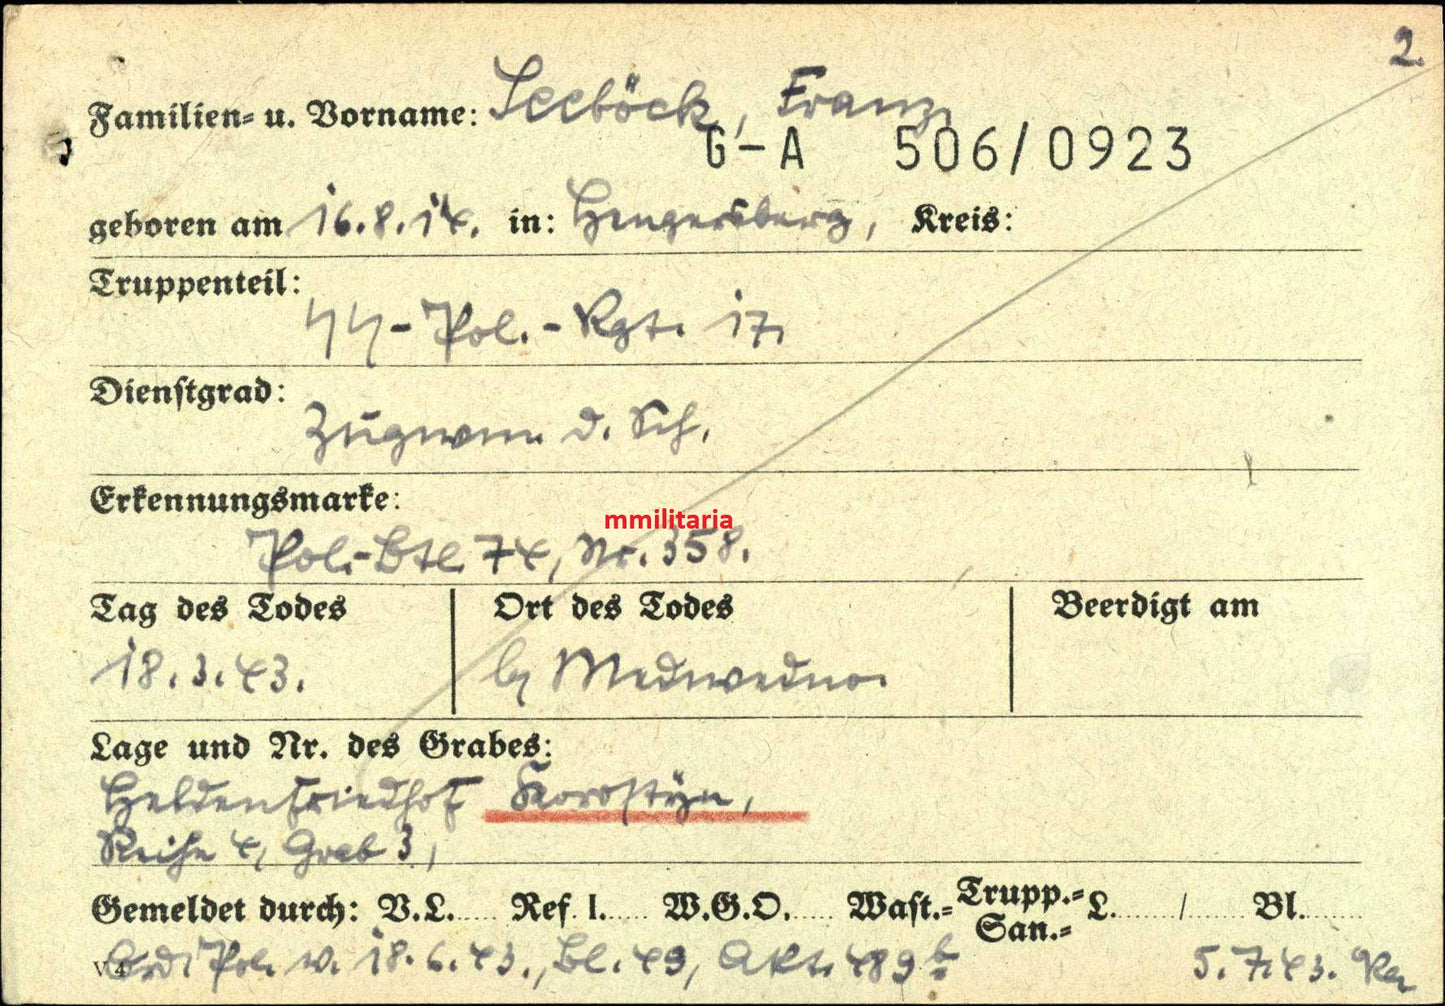 2.
Familien- u. Vorname: Seeböck, Franz,
G-A 506/0923
geboren am 16.8.14. in: Hengersberg, Kreis:
Truppenteil:
SS-Pol.-Rgt. 17.
Dienstgrad:
Zugwm. d. Sch.
Erkennungsmarke:
mmilitaria
Pol.-Btl. 74, Nr. 358.
Tag des Todes Ort des Todes Beerdigt am
18.3.43. bei Medwedno.
Lage und Nr. des Grabes:
Heldenfriedhof Korostyn,
Reihe 4, Grab 3,
Gemeldet durch: V.L..... Ref. I..... W.G.O..... Wast.- Trupp.- San.- L......../ Bl........
V 4 Ord. Pol. v. 18.6.43., Bl. 49, Akt. 489b 5.7.43.